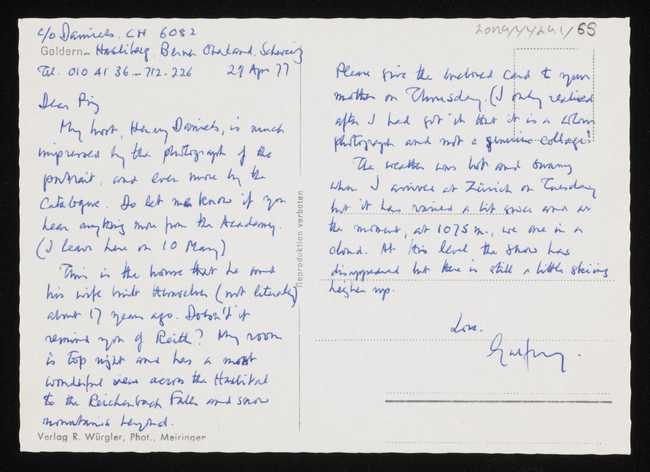 c/o Daniels, CH 6082
Goldern – Hasliberg, Berner Oberland, Schweiz
Tel. 010 41 36 – 712.226 29 Apr 77
Dear Piny
My host, Henry Daniels, is much
impressed by the photograph of the
portrait, and even more by the
Catalogue. Do let me know if you
hear anything more from the Academy.
(I leave here on 10 May)
This is the house that he and
his wife built themselves (not literally)
about 17 years ago. Doesn't it
remind you of Reith? My room
is top right and has a most
wonderful view across the Haslital
to the Reichenbach Falls and snow
mountains beyond.
Verlag R. Würgler, Phot., Meiringen
Reproduktion verboten
/65
Please give the enclosed card to your
mother on Thursday. (I only realised
after I had got it that it is a colour
photograph and not a genuine collage!
The weather was hot and sunny
when I arrived at Zürich on Tuesday
but it has rained a bit since and at
the moment, at 1075 m., we are in a
cloud. At this level the snow has
disappeared but there is still a little skiing
higher up.
Love.
Godfrey.